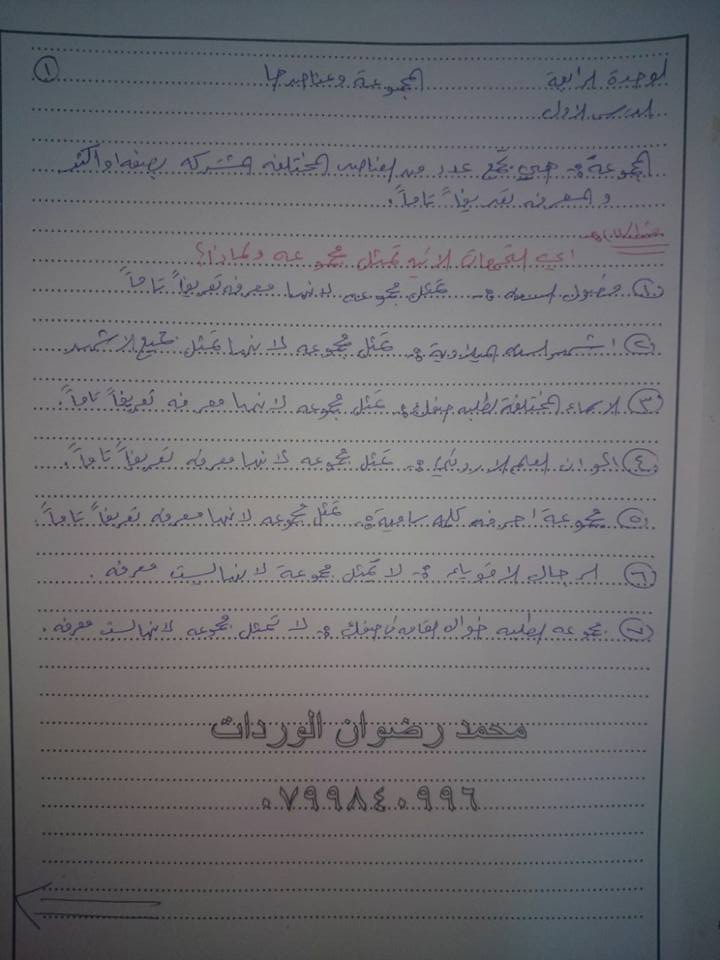 الوحدة الرابعة المجموعة وعناصرها ١
الدرس الأول
المجموعة :- هي تجمع عدد من العناصر المختلفه المشتركه بصفه او اكثر
والمعرفه تعريفاً تاماً.
مثال (١) :-
اي التجمعات الاتيه تمثل مجموعه ولماذا؟
١) فصول السنه :- تمثل مجموعه لانها معرفه تعريفاً تاماً
٢) اشهر السنه الميلادية :- تمثل مجموعه لانها تمثل جميع الاشهر
٣) الاسماء المختلفة لطلبه صفك :- تمثل مجموعه لانها معرفه تعريفاً تاماً.
٤) الوان العلم الاردني :- تمثل مجموعه لانها معرفه تعريفاً تاماً.
٥) مجموعة احرف كلمه سامية :- تمثل مجموعه لانها معرفه تعريفاً تاماً.
٦) الرجال الاقوياء :- لا تمثل مجموعة لانها ليست معرفه .
٧) مجموعه الطلبه طوال القامه في صفك :- لا تمثل مجموعه لانها ليست معرفه .
محمد رضوان الوردات
٠٧٩٩٨٤٠٩٩٦